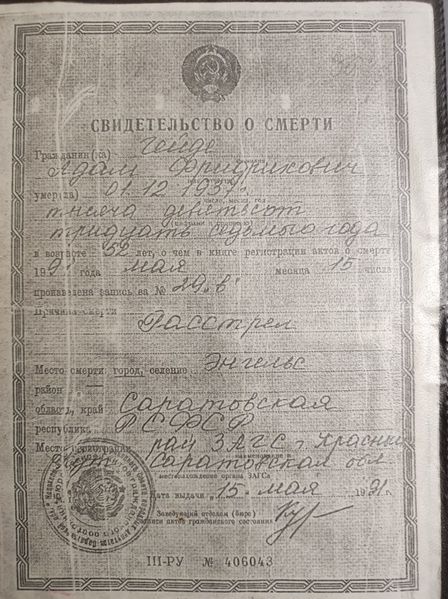 СВИДЕТЕЛЬСТВО О СМЕРТИ
Гражданин(ка) Гейде
Адам Фридрихович
умер(ла) 01.12.1937г.
число, месяц, год
тысяча девятсот
тридцать седьмого года
в возрасте 52 лет, о чем в книге регистрации актов о смерти
1991 года мая месяца 15 числа
произведена запись за № 29 "в"
Причина смерти
Расстрел
Место смерти: город, селение Энгельс
район —
область, край Саратовская
республика РСФСР
Место регистрации рай ЗАГС г. Красный
Саратовская обл
местонахождение органа ЗАГСа
Дата выдачи 15 мая 1991 г.
Заведующий отделом (бюро)
записи актов гражданского состояния
III-РУ № 406043